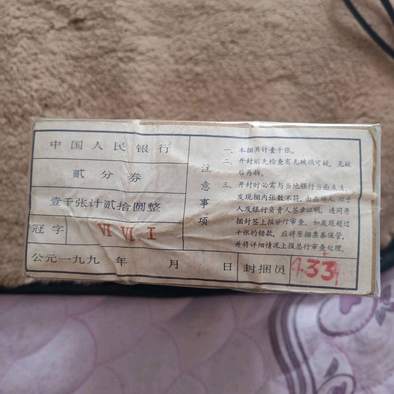 中国人民银行
贰分券
壹千张计贰拾圆整
冠字 VI VI I
公元一九九 年 月 日 封捆员 433
注意事项
一、本捆共计壹千张。
二、开封前先检查有无破损可疑，无疑后再拆。
三、开封时必需与当地银行当面点清
发现捆内张数不符，
人及银行负责人签章证明，连同原
捆封签上报总行审查。如差额超过
十张的错款，应将原捆票券保管，
并将详细情况上报总行审查处理。